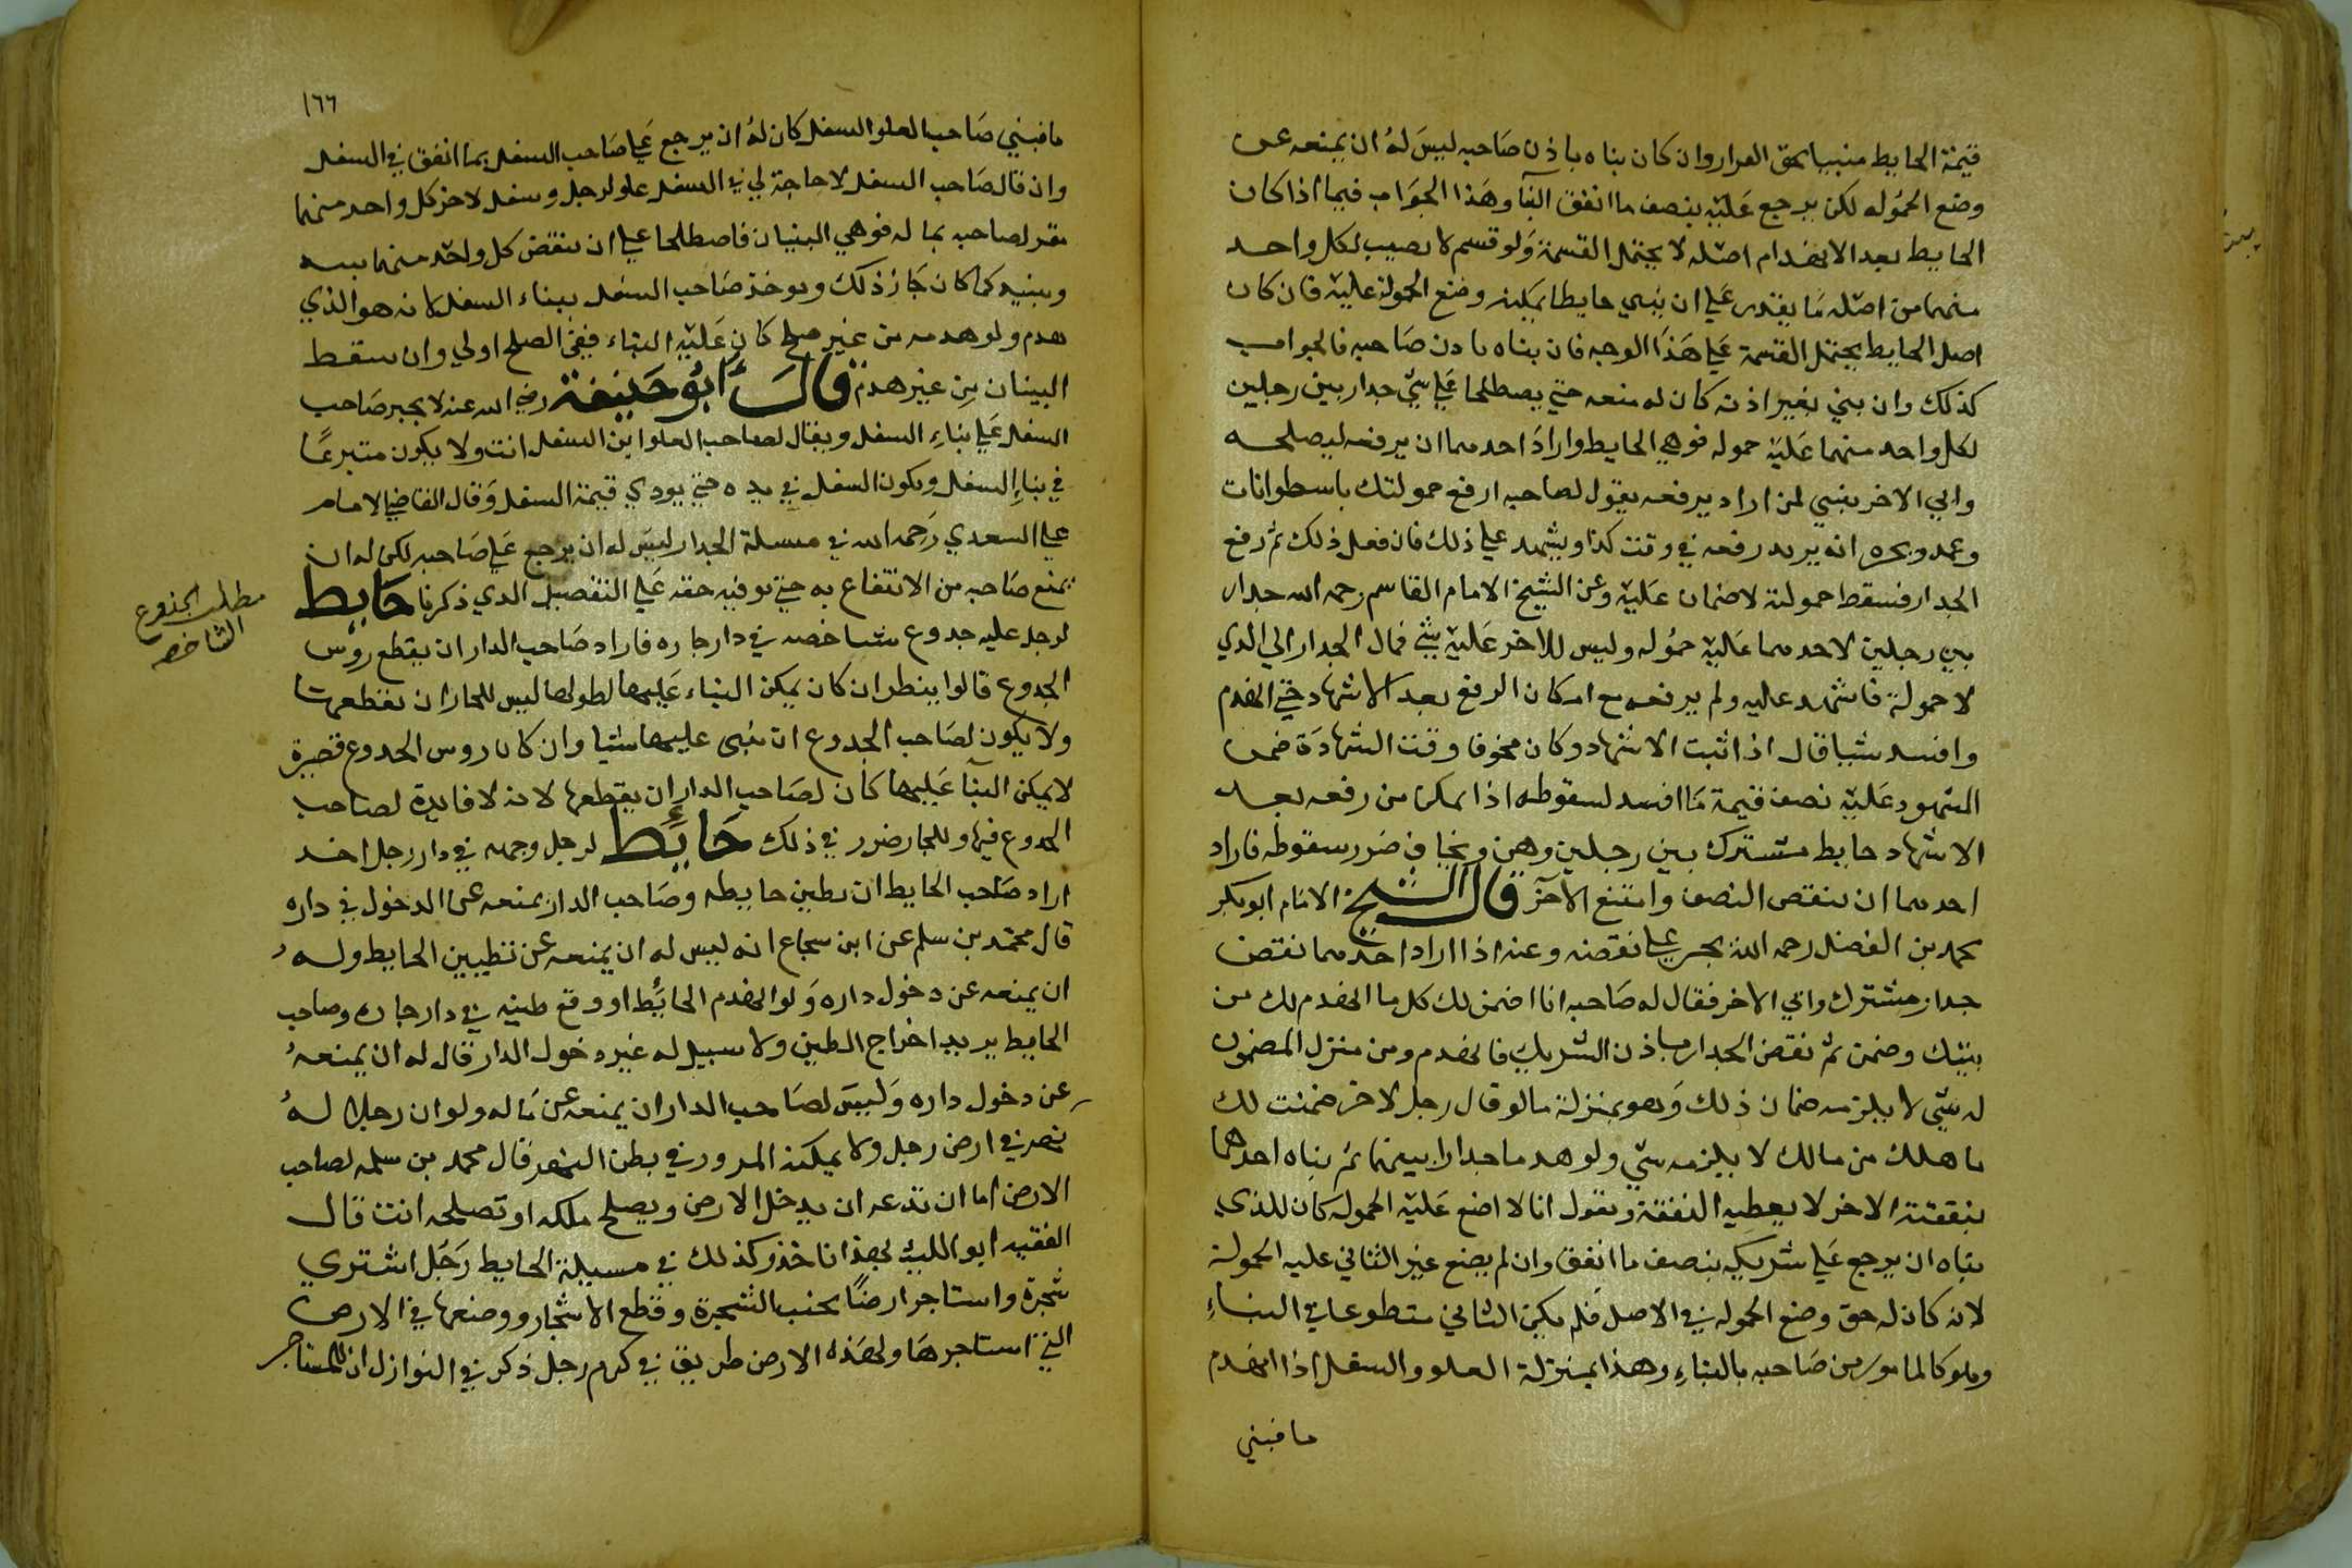 قيمة الحايط مبنيا بحق القرار وان كان بناه باذن صاحبه ليس له ان يمنعه عن
وضع الحموله لكن يرجع عليه بنصف ما انفق البنا وهذا الجواب فيما اذا كان
الحايط بعد الانهدام اصله لا يحتمل القسمة ولو قسم لا يصيب لكل واحد
منهما من اصله ما يقدر علي ان يبني حايطا يمكنه وضع الحمولة عليه فان كان
اصل الحايط يحتمل القسمة علي هذا الوجه فان بناه بادن صاحبه فالجواب
كذلك وان بني بغير اذنه كان له منعه حتي يصطلحا علي شي جدار بين رجلين
لكل واحد منهما عليه حموله فوهي الحايط واراد احدهما ان يرفعه ليصلحه
وابي الاخر ينبغي لمن اراد يرفعه يقول لصاحبه ارفع حمولتك باسطوانات
وعمد ويخبره انه يريد رفعه في وقت كذا ويشهد علي ذلك فان فعل ذلك ثم رفع
الجدار فسقط حمولته لا ضمان عليه وعن الشيخ الامام القاسم رحمه الله جدار
بين رجلين لاحدهما عليه حموله وليس للاخر عليه شي فمال الجدار الي الذي
لا حمولة فاشهد عليه ولم يرفعه مع امكان الرفع بعد الاشهاد حتي انهدم
وافسد شيا قال اذا ثبت الاشهاد وكان مخوفا وقت الشهادة ضمن
المشهود عليه نصف قيمة ما افسد لسقوطه اذا تمكن من رفعه بعد
الاشهاد حايط مشترك بين رجلين وهن ويخاف ضرر سقوطه فاراد
احدهما ان ينقض النصف وامتنع الاخر قال الشيخ الامام ابوبكر
محمد بن الفضل رحمه الله يجبر علي نقضه وعنه اذا اراد احدهما نقض
جدار مشترك وابي الاخر فقال له صاحبه انا اضمن لك كل ما انهدم لك من
بيتك وضمن ثم نقض الجدار باذن الشريك فانهدم ومن منزل المضمون
له شي لا يلزمه ضمان ذلك وهو بمنزلة مالو قال رجل لاخر ضمنت لك
ما هلك من مالك لا يلزمه شي ولو هدما جدارا بينهما ثم بناه احدهما
بنفقته الاخر لا يعطيه النفقة ويقول انا لا اضع عليه الحموله كان للذي
بناه ان يرجع علي شريكه بنصف ما انفق وان لم يضع غير الثاني عليه الحمولة
لانه كان له حق وضع الحموله في الاصل فلم يكن الثاني متطوعا في البناء
وهو كالمامور من صاحبه بالبناء وهذا بمنزلة العلو والسفل اذا انهدم
ما فبني
١٦٦
ما فبني صاحب العلو السفل كان له ان يرجع علي صاحب السفل بما انفق في السفل
وان قال صاحب السفل لا حاجة لي في السفل علو لرجل وسفل لاخر كل واحد منهما
مقر لصاحبه بما له فوهي البنيان فاصطلحا علي ان ينقض كل واحد منهما بيته
ويبنيه كما كان جاز ذلك ويوخذ صاحب السفل ببناء السفل لانه هو الذي
هدم ولو هدمه من غير صلح كان عليه البناء ففي الصلح اولي وان سقط
البينان من غير هدم قال ابو حنيفة رضي الله عنه لا يجبر صاحب
السفل علي بناء السفل ويقال لصاحب العلو ابن السفل انت ولا يكون متبرعا
في بناء السفل ويكون السفل في يده حتي يودي قيمة السفل وقال القاضي الامام
علي السعدي رحمه الله في مسلة الجدار ليس له ان يرجع علي صاحبه لكن له ان
يمنع صاحبه من الانتفاع به حتي يوفيه حقه علي التفصيل الذي ذكرنا حايط
لرجل عليه جدوع شاخصه في دار جاره فاراد صاحب الدار ان يقطع روس
الجدوع قالوا ينظر ان كان يمكن البناء عليها لطولها ليس للجار ان يقطعها
ولا يكون لصاحب الجدوع ان يبني عليها شيا وان كان روس الجدوع قصيرة
لا يمكن البنا عليها كان لصاحب الدار ان يقطعها لانه لا فايدة لصاحب
الجدوع فيها وللجار ضرر في ذلك حايط لرجل وجهه في دار رجل اخر
اراد صاحب الحايط ان يطين حايطه وصاحب الدار يمنعه عن الدخول في داره
قال محمد بن سلم عن ابن شجاع انه ليس له ان يمنعه عن تطيين الحايط وله
ان يمنعه عن دخول داره ولو انهدم الحايط او وقع طينه في دار جاره وصاحب
الحايط يريد اخراج الطين ولا سبيل له غير دخول الدار قال له ان يمنعه
عن دخول داره وليس لصاحب الدار ان يمنعه عن ماله ولو ان رجلا له
نهر في ارض رجل ولا يمكنه المرور في بطن النهر قال محمد بن سلمه لصاحب
الارض اما ان تدعه ان يدخل الارض ويصلح ملكه او تصلحه انت قال
الفقيه ابو الليث بهذا ناخذ وكذلك في مسيلة الحايط رجل اشتري
شجرة واستاجر ارضا بجنب الشجرة وقطع الاشجار ووضعها في الارض
التي استاجرها ولهذه الارض طريق في كرم رجل ذكر في النوازل ان للمستاجر
مطلب الجذوع
الشاخصه